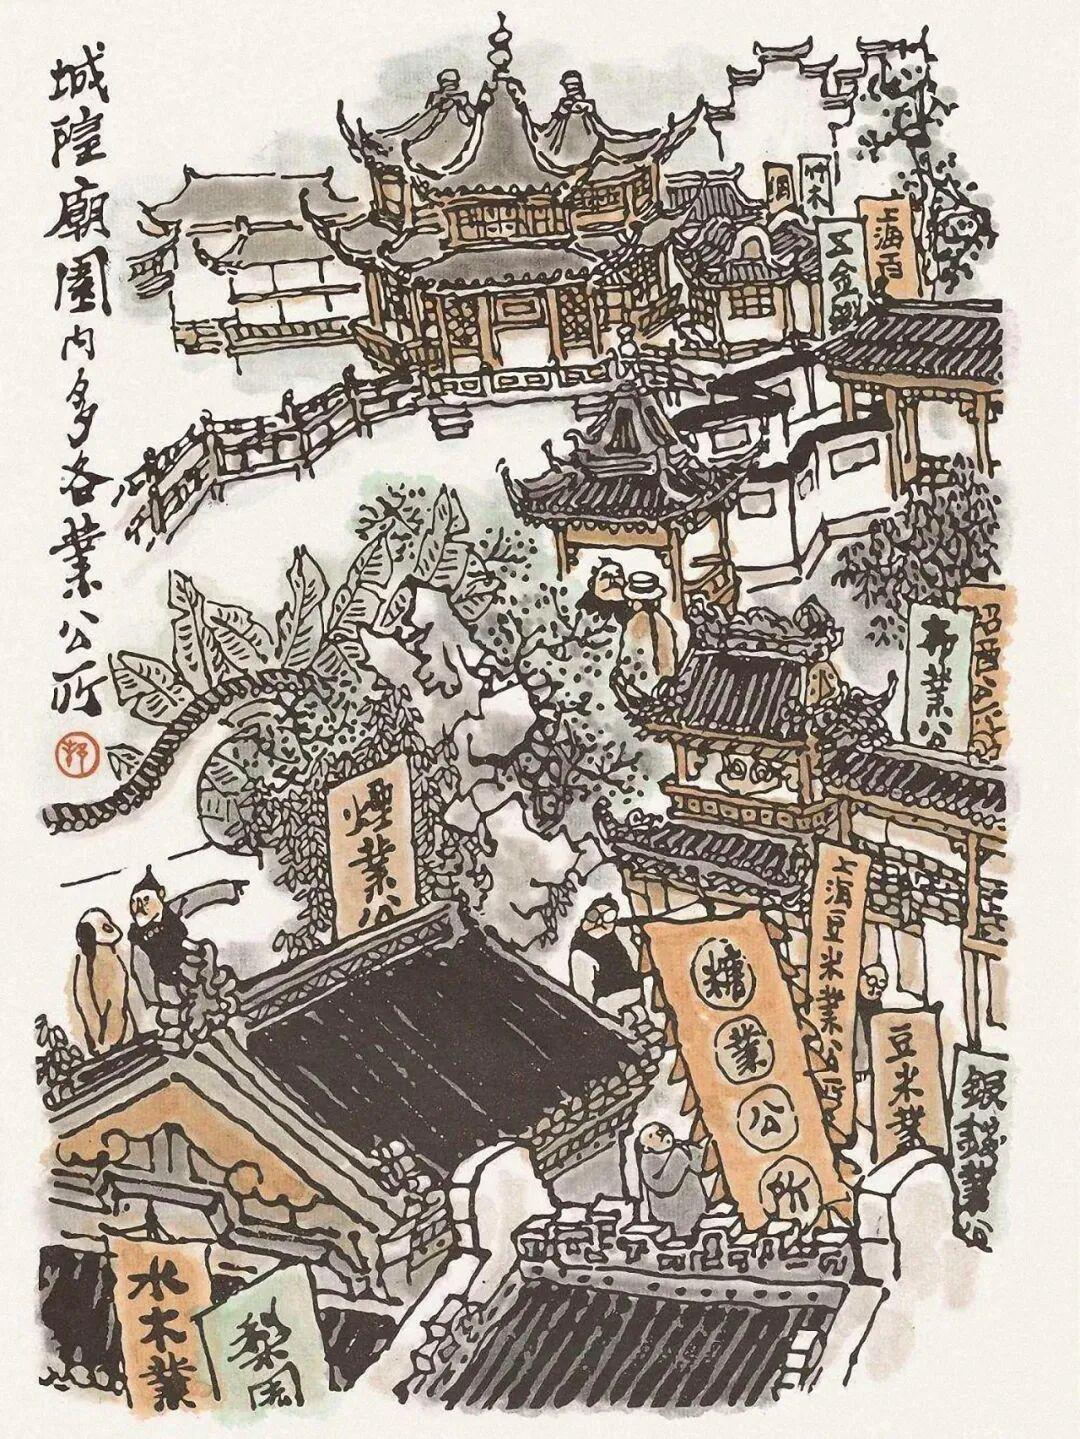 城隍廟園内多各業公所
五金
上海百
布業公
煙業公
糖業公所
上海豆米業公所
豆米業
銀錢業公
水木業
梨園